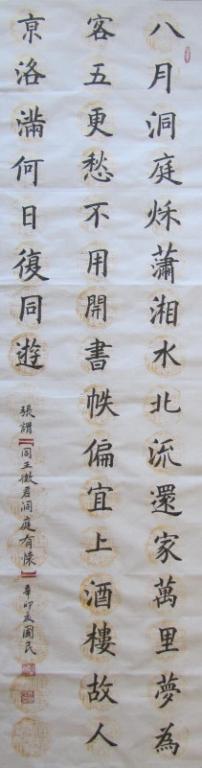 八月洞庭秌瀟湘水北流還家萬里夢為
客五更愁不用開書帙偏宜上酒樓故人
京洛滿何日復同遊
張謂【同王徵君洞庭有懷】辛卯友國民